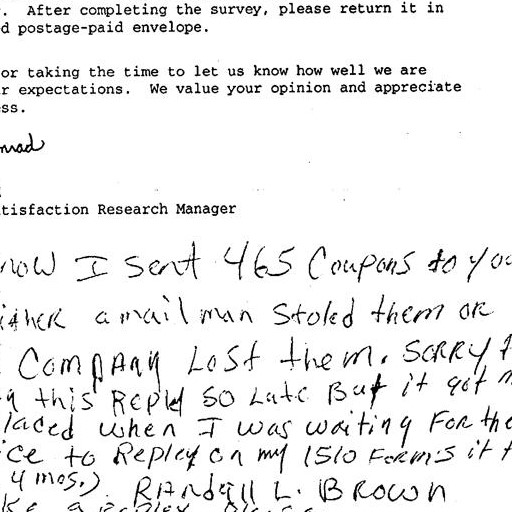 .  After completing the survey, please return it in
d postage-paid envelope.
or taking the time to let us know how well we are
r expectations.  We value your opinion and appreciate
ss.
mad
tisfaction Research Manager
now I sent 465 Coupons to you
ither a mail man Stoled them or
Company Lost them. Sorry f
g this Reply so Late But it got m
laced when I was waiting For the
ice to Repley on my 1510 Forms it t
4 mos.) Randall L. Brown